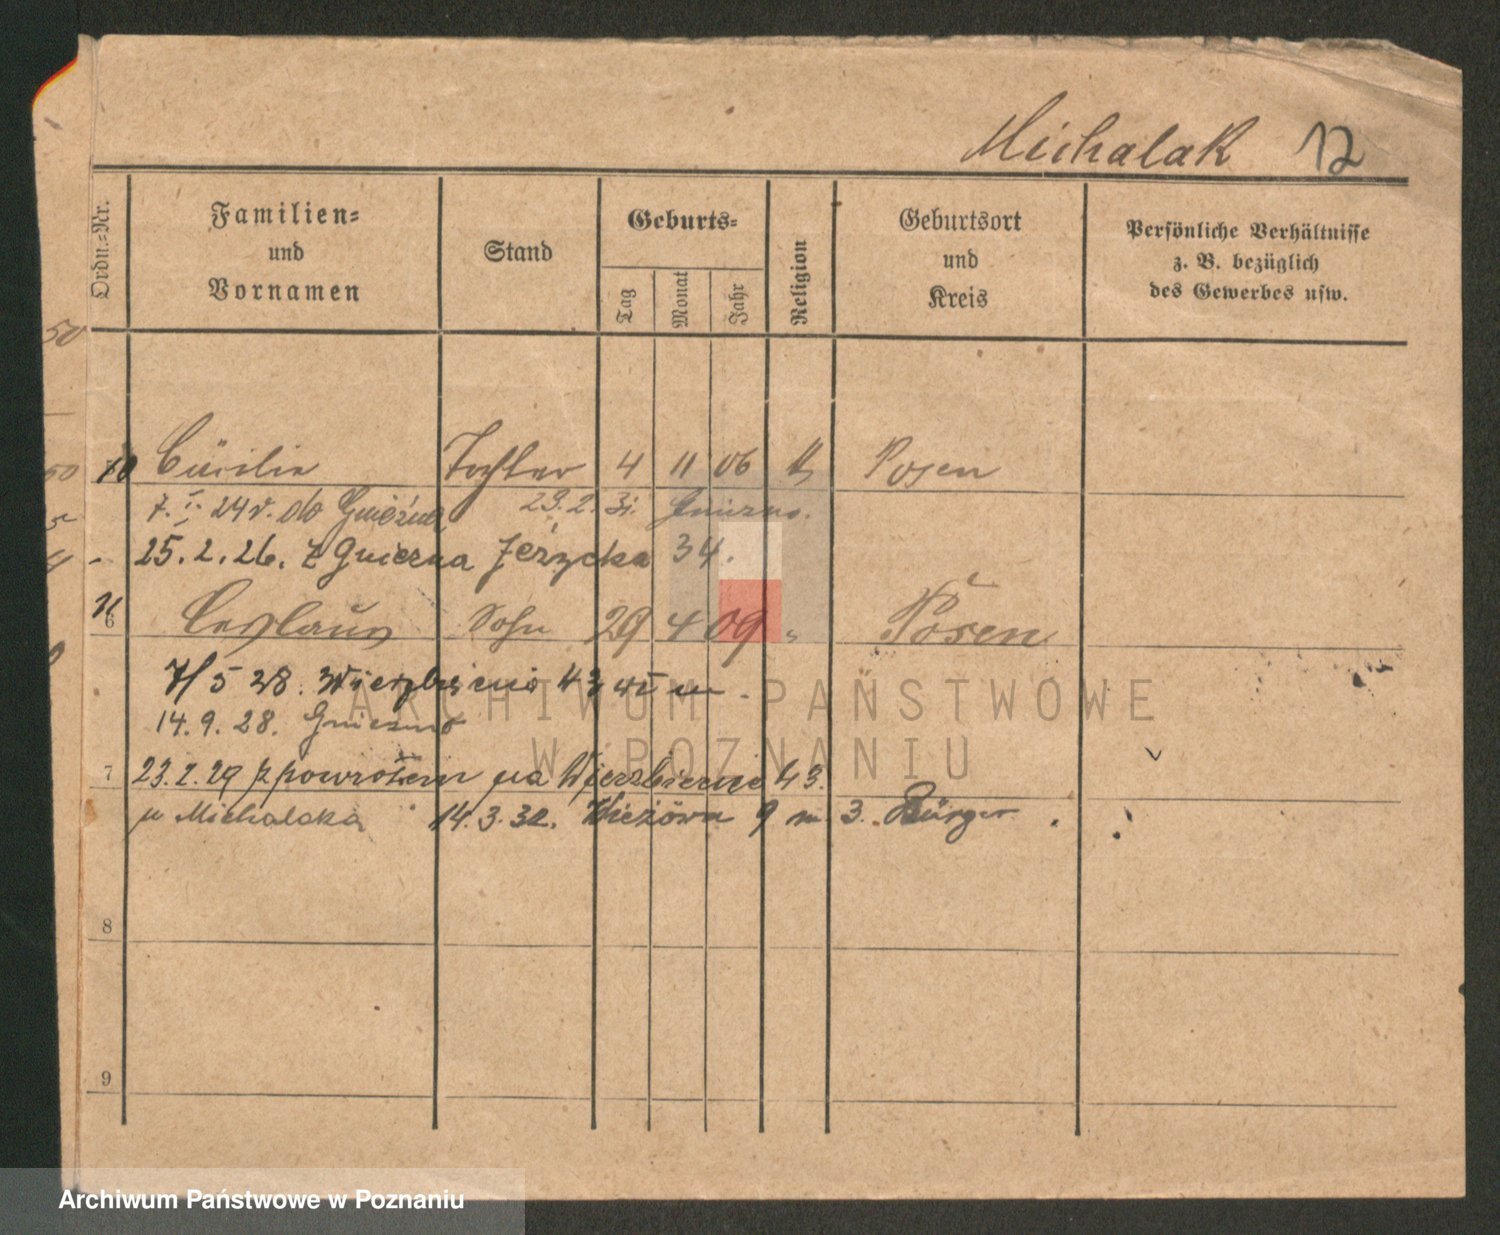 Michalak 12
Ordn.-Nr.
Familien-
und
Vornamen
Stand
Geburts-
Tag
Monat
Jahr
Religion
Geburtsort
und
Kreis
Persönliche Verhältnisse
z. B. bezüglich
des Gewerbes usw.
50
10 Cäcilie Tochter 4 11 06 k Posen
7. I. 24 r. do Gniezna, 29.2.31. Gniezno.
25.2.26. z Gniezna Jerzycka 34.
6 Ceslaus Sohn 29 4 09 " Posen
5 28. Wierzbięcice 43 m
14.9.28. Gniezno
7 23.2.29 z powrotem na Wierzbięcice 43.
u Michalaka 14.3.32. 9 m 3. Bürger
8
9
ARCHIWUM PAŃSTWOWE
W POZNANIU
Archiwum Państwowe w Poznaniu